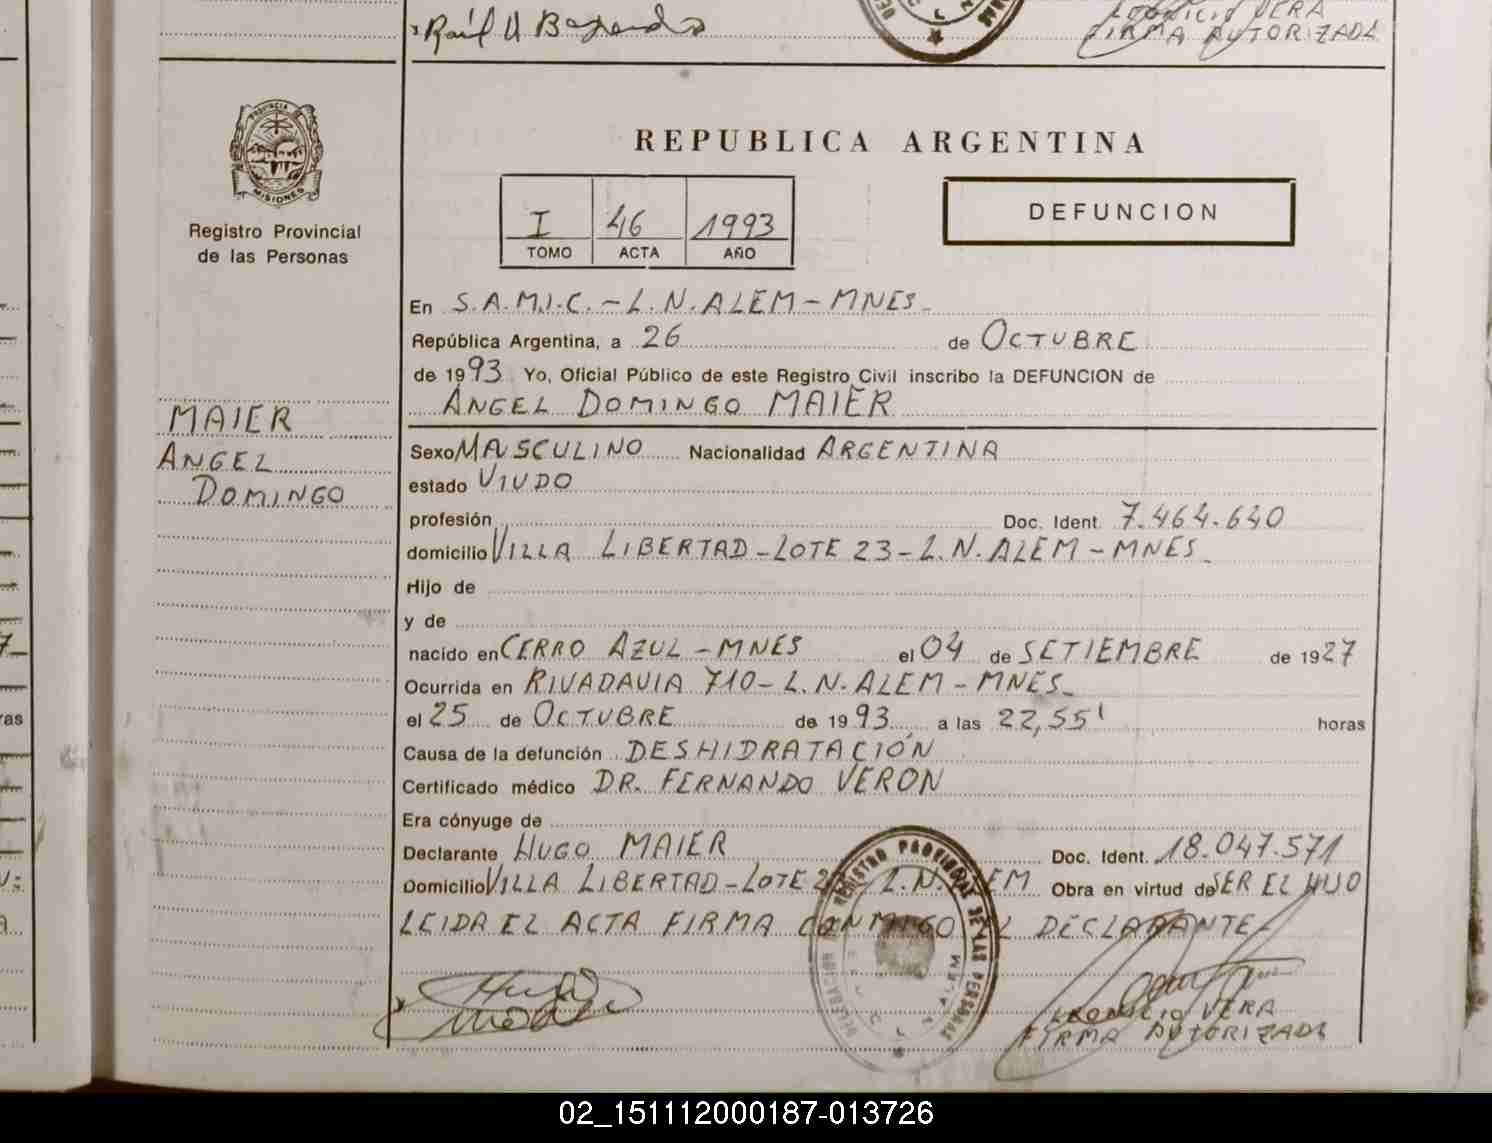 Raúl A
VERA
FIRMA AUTORIZADA
PROVINCIA
MISIONES
Registro Provincial
de las Personas
REPUBLICA ARGENTINA
I 46 1993
TOMO ACTA AÑO
DEFUNCION
En S.A.M.I.C. - L.N. ALEM - MNES.
República Argentina, a 26 de OCTUBRE
de 1993 Yo, Oficial Público de este Registro Civil inscribo la DEFUNCION de
ANGEL DOMINGO MAIER
MAIER
ANGEL
DOMINGO
Sexo MASCULINO Nacionalidad ARGENTINA
estado VIUDO
profesión Doc. Ident. 7.464.640
domicilio VILLA LIBERTAD - LOTE 23 - L.N. ALEM - MNES.
Hijo de
y de
nacido en CERRO AZUL - MNES el 04 de SETIEMBRE de 1927
Ocurrida en RIVADAVIA 710 - L.N. ALEM - MNES.
el 25 de OCTUBRE de 1993 a las 22,55' horas
Causa de la defunción DESHIDRATACIÓN
Certificado médico DR. FERNANDO VERON
Era cónyuge de
Declarante HUGO MAIER Doc. Ident. 18.047.571
Domicilio VILLA LIBERTAD - LOTE 2 - L.N. ALEM Obra en virtud de SER EL HIJO
LEIDA EL ACTA FIRMA CONMIGO EL DECLARANTE -
REGISTRO PROVINCIAL DE LAS PERSONAS
VERA
FIRMA AUTORIZADA
02_151112000187-013726